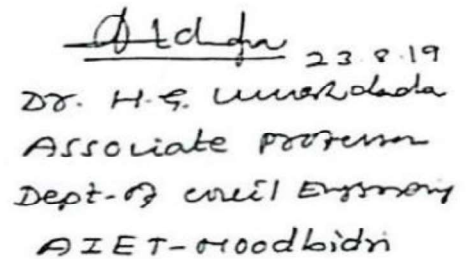 23.8.19
Dr. H.G. Umeshdada
Associate Professor
Dept. of Civil Engineering
AIET-Moodbidri